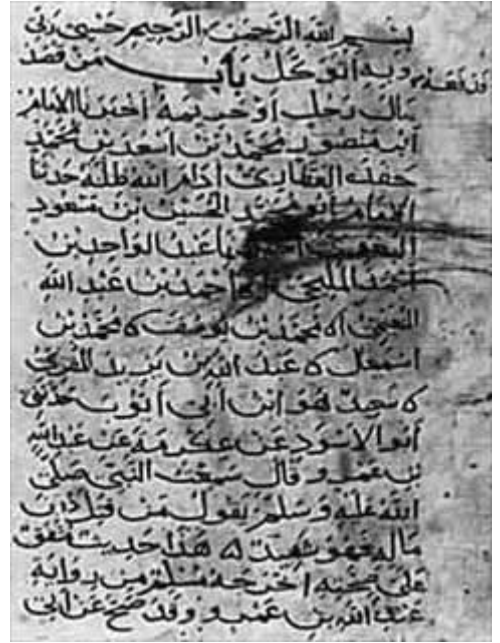 بسم الله الرحمن الرحيم حسبي ربي
وبه اثق وكل باب من قصد
مال رجل او حريمه اخبرنا الامام
ابو منصور محمد بن اسعد بن محمد
حفده العطاري ادام الله ظله حدثنا
الامام ابو محمد الحسين بن مسعود
عبد الواحد بن
احمد المليحي احمد بن عبد الله
النعيمي اه محمد بن يوسف ه محمد بن
اسمعيل ه عبد الله بن يزيد المقري
ه سعيد هو ابن ابي ايوب حدثني
ابو الاسود عن عكرمه عن عبد الله
بن عمرو قال سمعت النبي صلى
الله عليه وسلم يقول من قتل دون
ماله فهو شهيد ه هذا حديث متفق
على صحته اخرجه مسلم من روايه
عبد الله بن عمرو وقد صح عن ابي